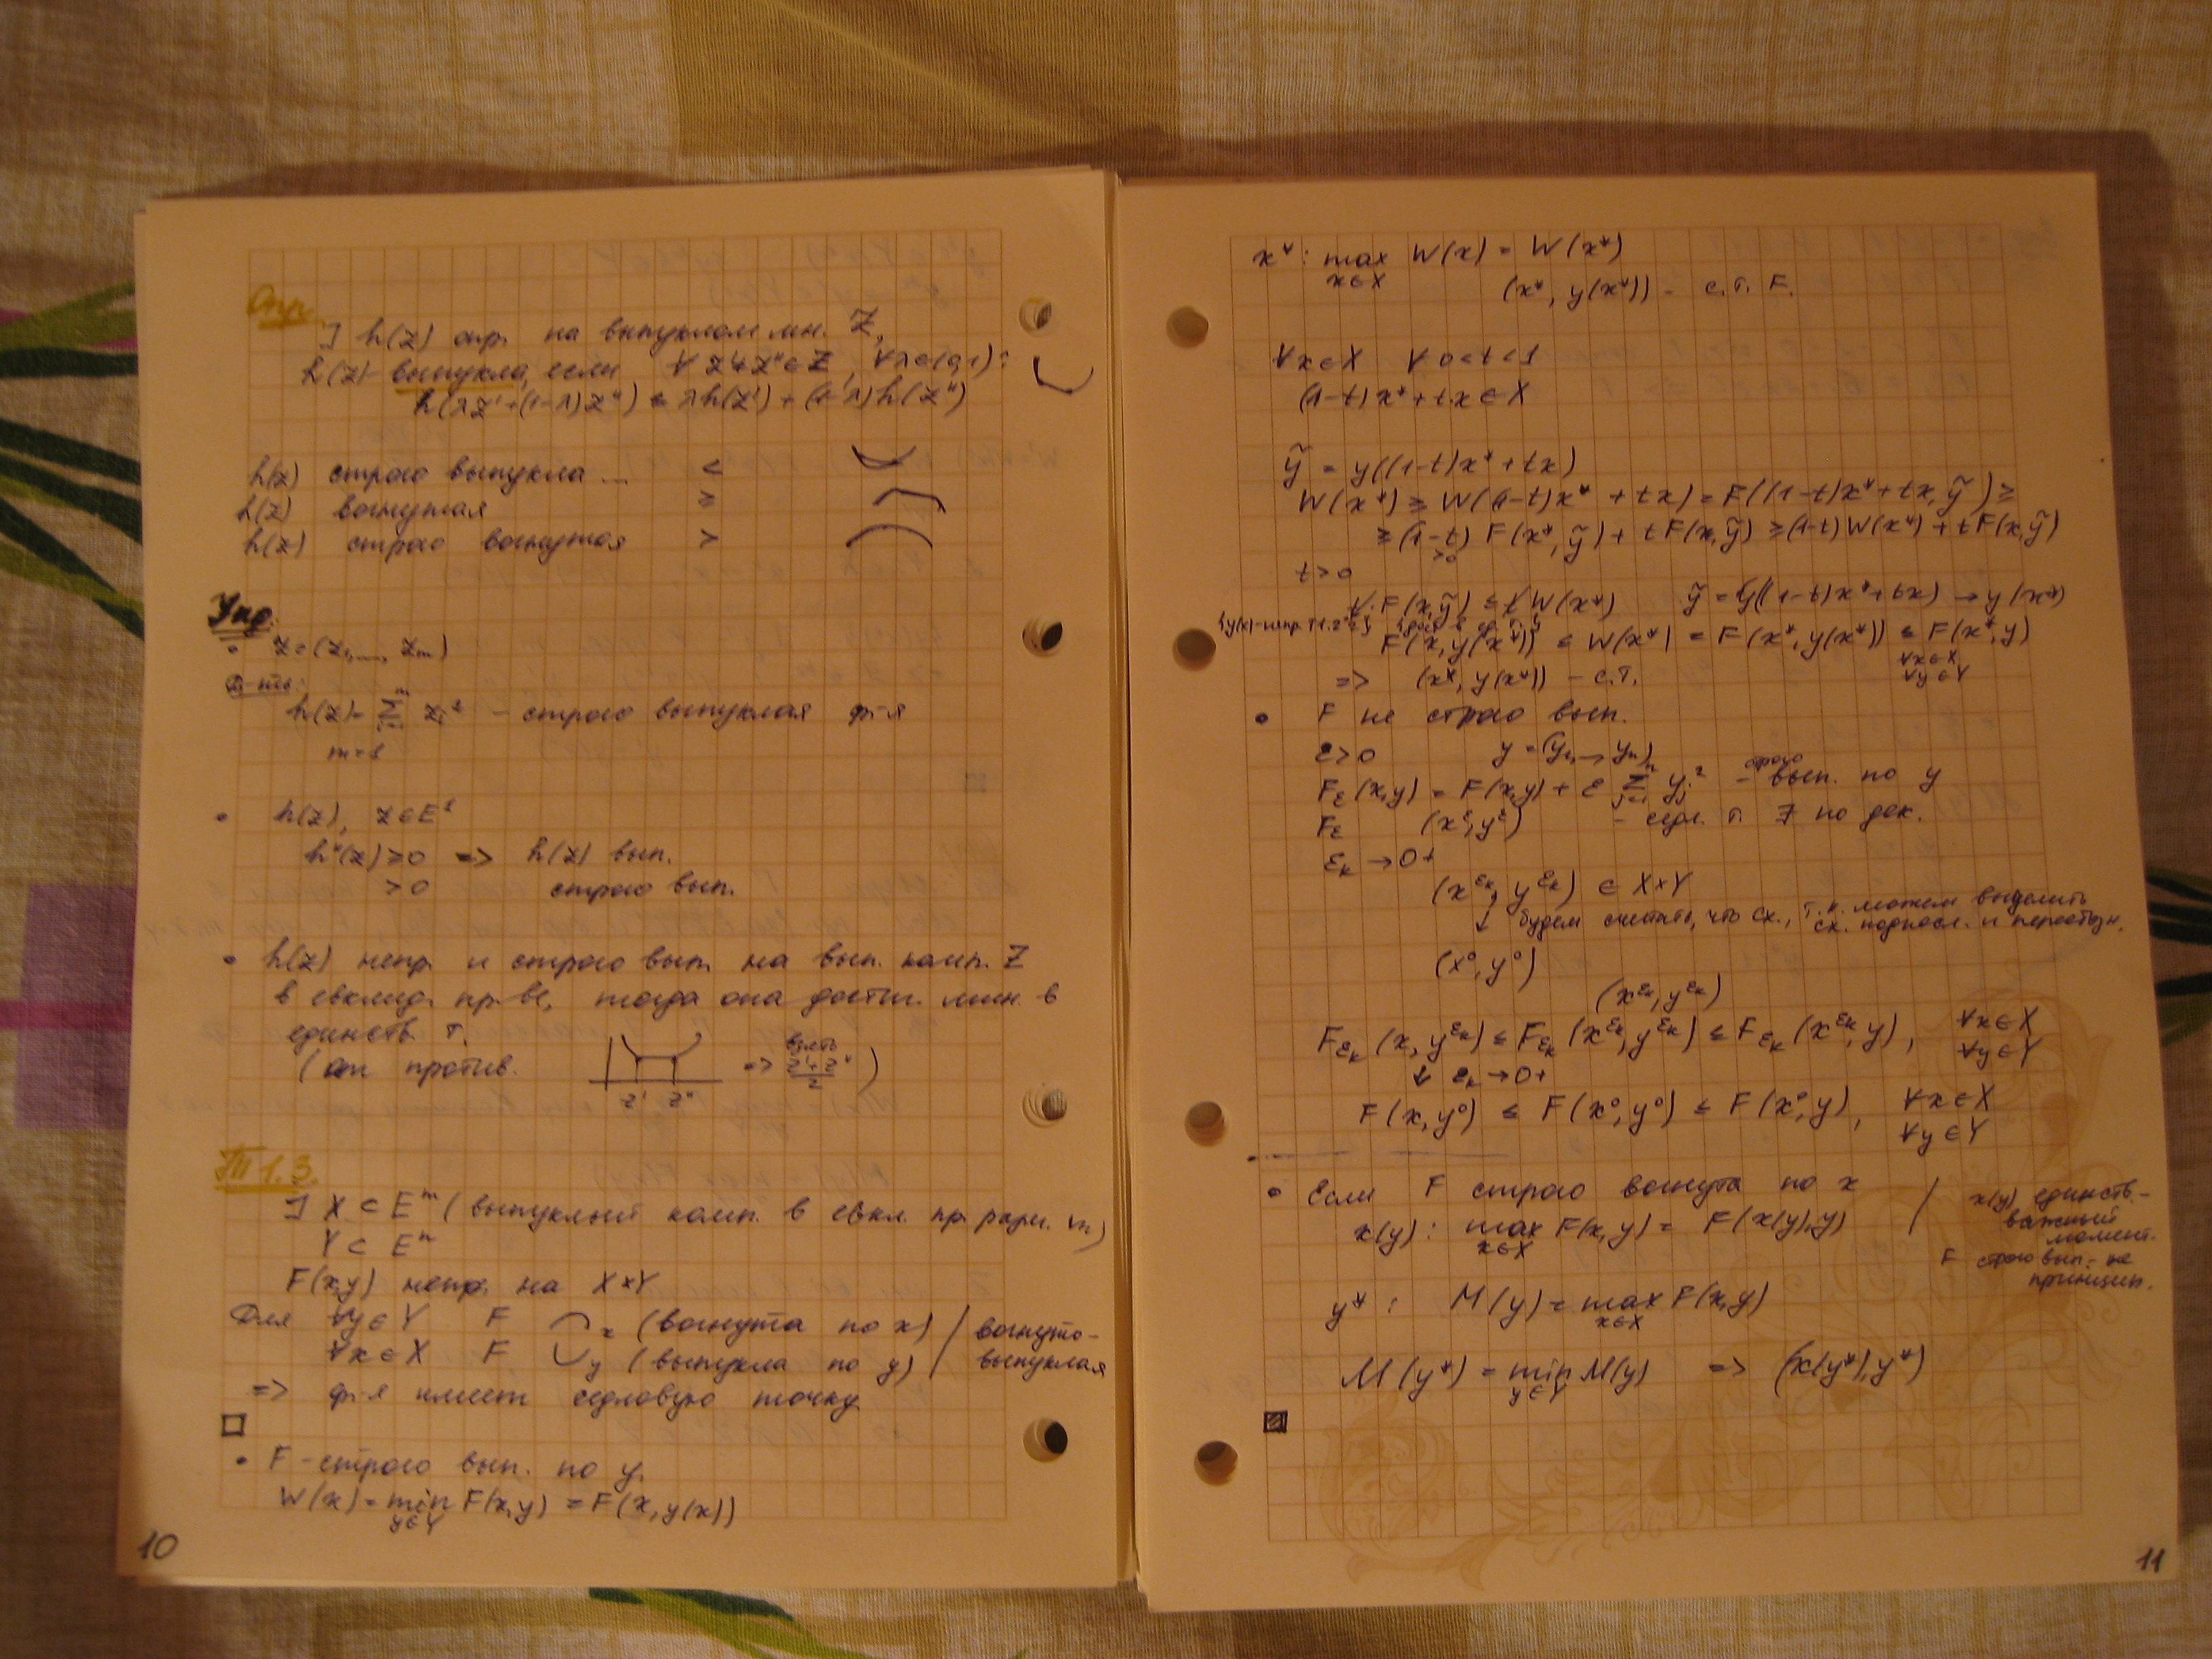 Опр.
∃ h(z) опр. на выпуклом мн. Z,
h(z) - выпукла, если ∀ z' ≠ z'' ∈ Z, ∀λ∈(0,1):
h(λz'+(1-λ)z'') ≤ λh(z') + (1-λ)h(z'')
h(z) строго выпукла ... <
h(z) вогнутая ≥
h(z) строго вогнутая >
Упр.
• z = (z₁, ..., zₘ)
h(z) = ∑ᵢ₌₁ᵐ zᵢ² - строго выпуклая ф-я
• h(z), z ∈ E¹
h''(z) ≥ 0 => h(z) вып.
> 0 строго вып.
• h(z) непр. и строго вып. на вып. комп. Z
в евклид. пр-ве, тогда она достиг. мин. в
единств. т.
(от против. z' z'' => взять (z'+z'')/2 )
Т 1.3.
∃ X ⊂ Eᵐ (выпуклый комп. в евкл. пр. разм. m)
Y ⊂ Eⁿ
F(x,y) непр. на X×Y
Для ∀y∈Y F ⌒ₓ (вогнута по x) / вогнуто-
∀x∈X F ◡ᵧ (выпукла по y) / выпуклая
=> ф-я имеет седловую точку
□
• F - строго вып. по y.
W(x) = min_{y∈Y} F(x,y) = F(x, y(x))
10
x*: max_{x∈X} W(x) = W(x*)
(x*, y(x*)) - с.т. F.
∀x∈X ∀ 0<t<1
(1-t)x*+tx ∈ X
ỹ = y((1-t)x*+tx)
W(x*) ≥ W((1-t)x* + tx) = F((1-t)x*+tx, ỹ) ≥
≥ (1-t) F(x*, ỹ) + tF(x,ỹ) ≥ (1-t)W(x*) + tF(x,ỹ)
>0
t>0
t·F(x,ỹ) ≤ t W(x*) ỹ = y((1-t)x*+tx) → y(x*)
F(x, y(x*)) ≤ W(x*) = F(x*, y(x*)) ≤ F(x*, y)
∀x∈X
∀y∈Y
=> (x*, y(x*)) - с.т.
• F не строго вып.
ε>0 y = (y₁, ..., yₙ)
F_ε(x,y) = F(x,y) + ε ∑ⱼ₌₁ⁿ yⱼ² - строго вып. по y
F_ε (x^ε, y^ε) - седл. т. ∃ по док.
ε_k → 0+
(x^{ε_k}, y^{ε_k}) ∈ X×Y
↓ будем считать, что сх., т.к. можем выделить
сх. подпосл. и переобозн.
(x⁰, y⁰)
(x^{ε_k}, y^{ε_k})
F_{ε_k}(x, y^{ε_k}) ≤ F_{ε_k}(x^{ε_k}, y^{ε_k}) ≤ F_{ε_k}(x^{ε_k}, y), ∀x∈X
∀y∈Y
↓ ε_k → 0+
F(x,y⁰) ≤ F(x⁰,y⁰) ≤ F(x⁰,y), ∀x∈X
∀y∈Y
• Если F строго вогнута по x
x(y): max_{x∈X} F(x,y) = F(x(y),y)
/ x(y) единств. -
важный
момент.
F строго вып. - не
принцип.
y*: M(y) = max_{x∈X} F(x,y)
M(y*) = min_{y∈Y} M(y) => (x(y*), y*)
■
11